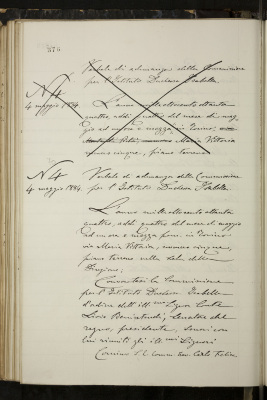 376
Verbale di adunanza della Commissione
per l'Istituto Duchessa Isabella
N 4
4 maggio 1884
L'anno mille ottocento ottanta
quattro, addì quattro del mese di mag
gio ad ore e mezza in Torino,
Maria Vittoria
numero cinque, piano terreno
N 4
4 maggio 1884.
Verbale di adunanza della Commissione
per l'Istituto Duchessa Isabella
L'anno mille ottocento ottanta
quattro, addì quattro del mese di maggio
ad ore e mezza pom. in Torino
via Maria Vittoria, numero cinque,
piano terreno nella sala della
Direzione,
Convocatasi la Commissione
per l'Istituto Duchessa Isabella
d'ordine dell'ill.mo Signor Conte
Livio Benintendi, Senatore del
regno, presidente, sonosi con
lui riuniti gli ill.mi Signori
Comm. Carlo